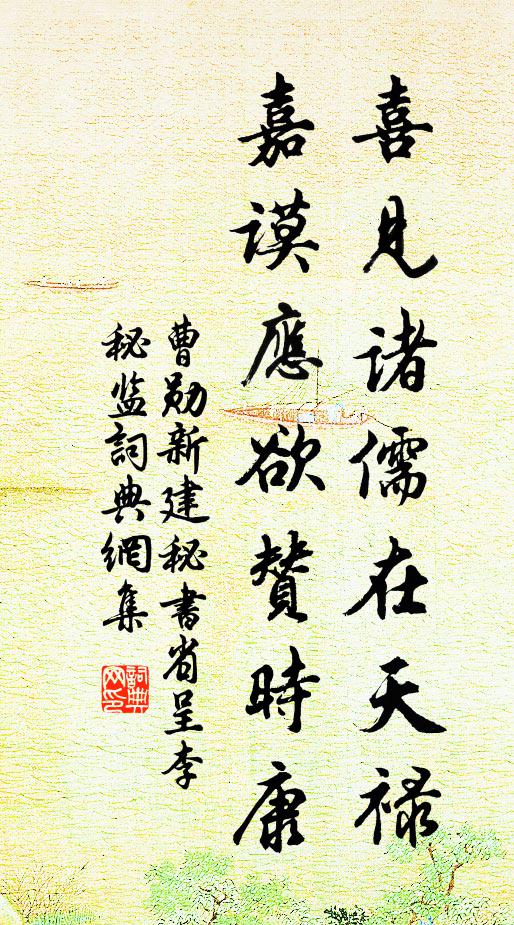 喜見諸儒在天祿
嘉謨應欲贊時康
曹勛新建秘書省呈李
秘监詞典網集
詞典网印